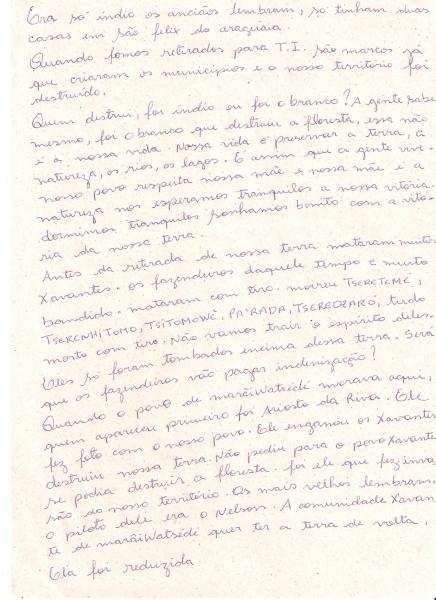 Era só índio os anciãos lembram, só tinham duas
casas em são felix do araguaia.
Quando fomos retirados para T.I. são marcos já
que criaram os municípios e o nosso território foi
destruído.
Quem destruiu, foi índio ou foi o branco? A gente sabe
mesmo, foi o branco que destruiu a floresta, essa não
é a nossa vida. Nossa vida é preservar a terra, a
natureza, os rios, os lagos. E assim que a gente vive.
nosso povo respeita nossa mãe e nossa mãe é a
natureza nós esperamos tranquilos a nossa vitória.
dormimos tranquilos sonhamos bonito com a vito-
ria da nossa terra.
Antes da retirada de nossa terra mataram muitos
Xavantes. os fazendeiros daquele tempo é muito
bandido. mataram com tiro. morreu TSERETEMÉ,
TSERENHITOMO, TSITOMOWÊ, PA'RADA, TSEREDZARÓ, tudo
morto com tiro. Não vamos trair o espírito deles.
Eles só foram tombados encima dessa terra. Será
que os fazendeiros vão pagar indenização?
Quando o povo de marãiWatsédé morava aqui,
quem apareceu primeiro foi Ariosto da Riva. Ele
fez foto com o nosso povo. Ele enganou os Xavantes
destruiu nossa terra. Não pediu para o povo Xavante
se podia destruir a floresta. foi ele que fez inva
são do nosso território. Os mais velhos lembram.
O piloto dele era o Nelson. A comunidade Xavan
te de marãiWatsédé quer ter a terra de volta,
Ela foi reduzida